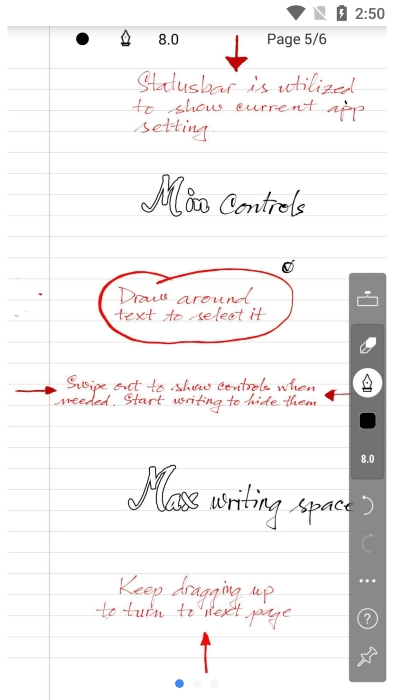 2:50
8.0 Page 5/6
Statusbar is utilized
to show current app
setting.
Min Controls
Draw around
text to select it
Swipe out to show controls when
needed. Start writing to hide them
8.0
Max writing space
?
Keep dragging up
to turn to next page